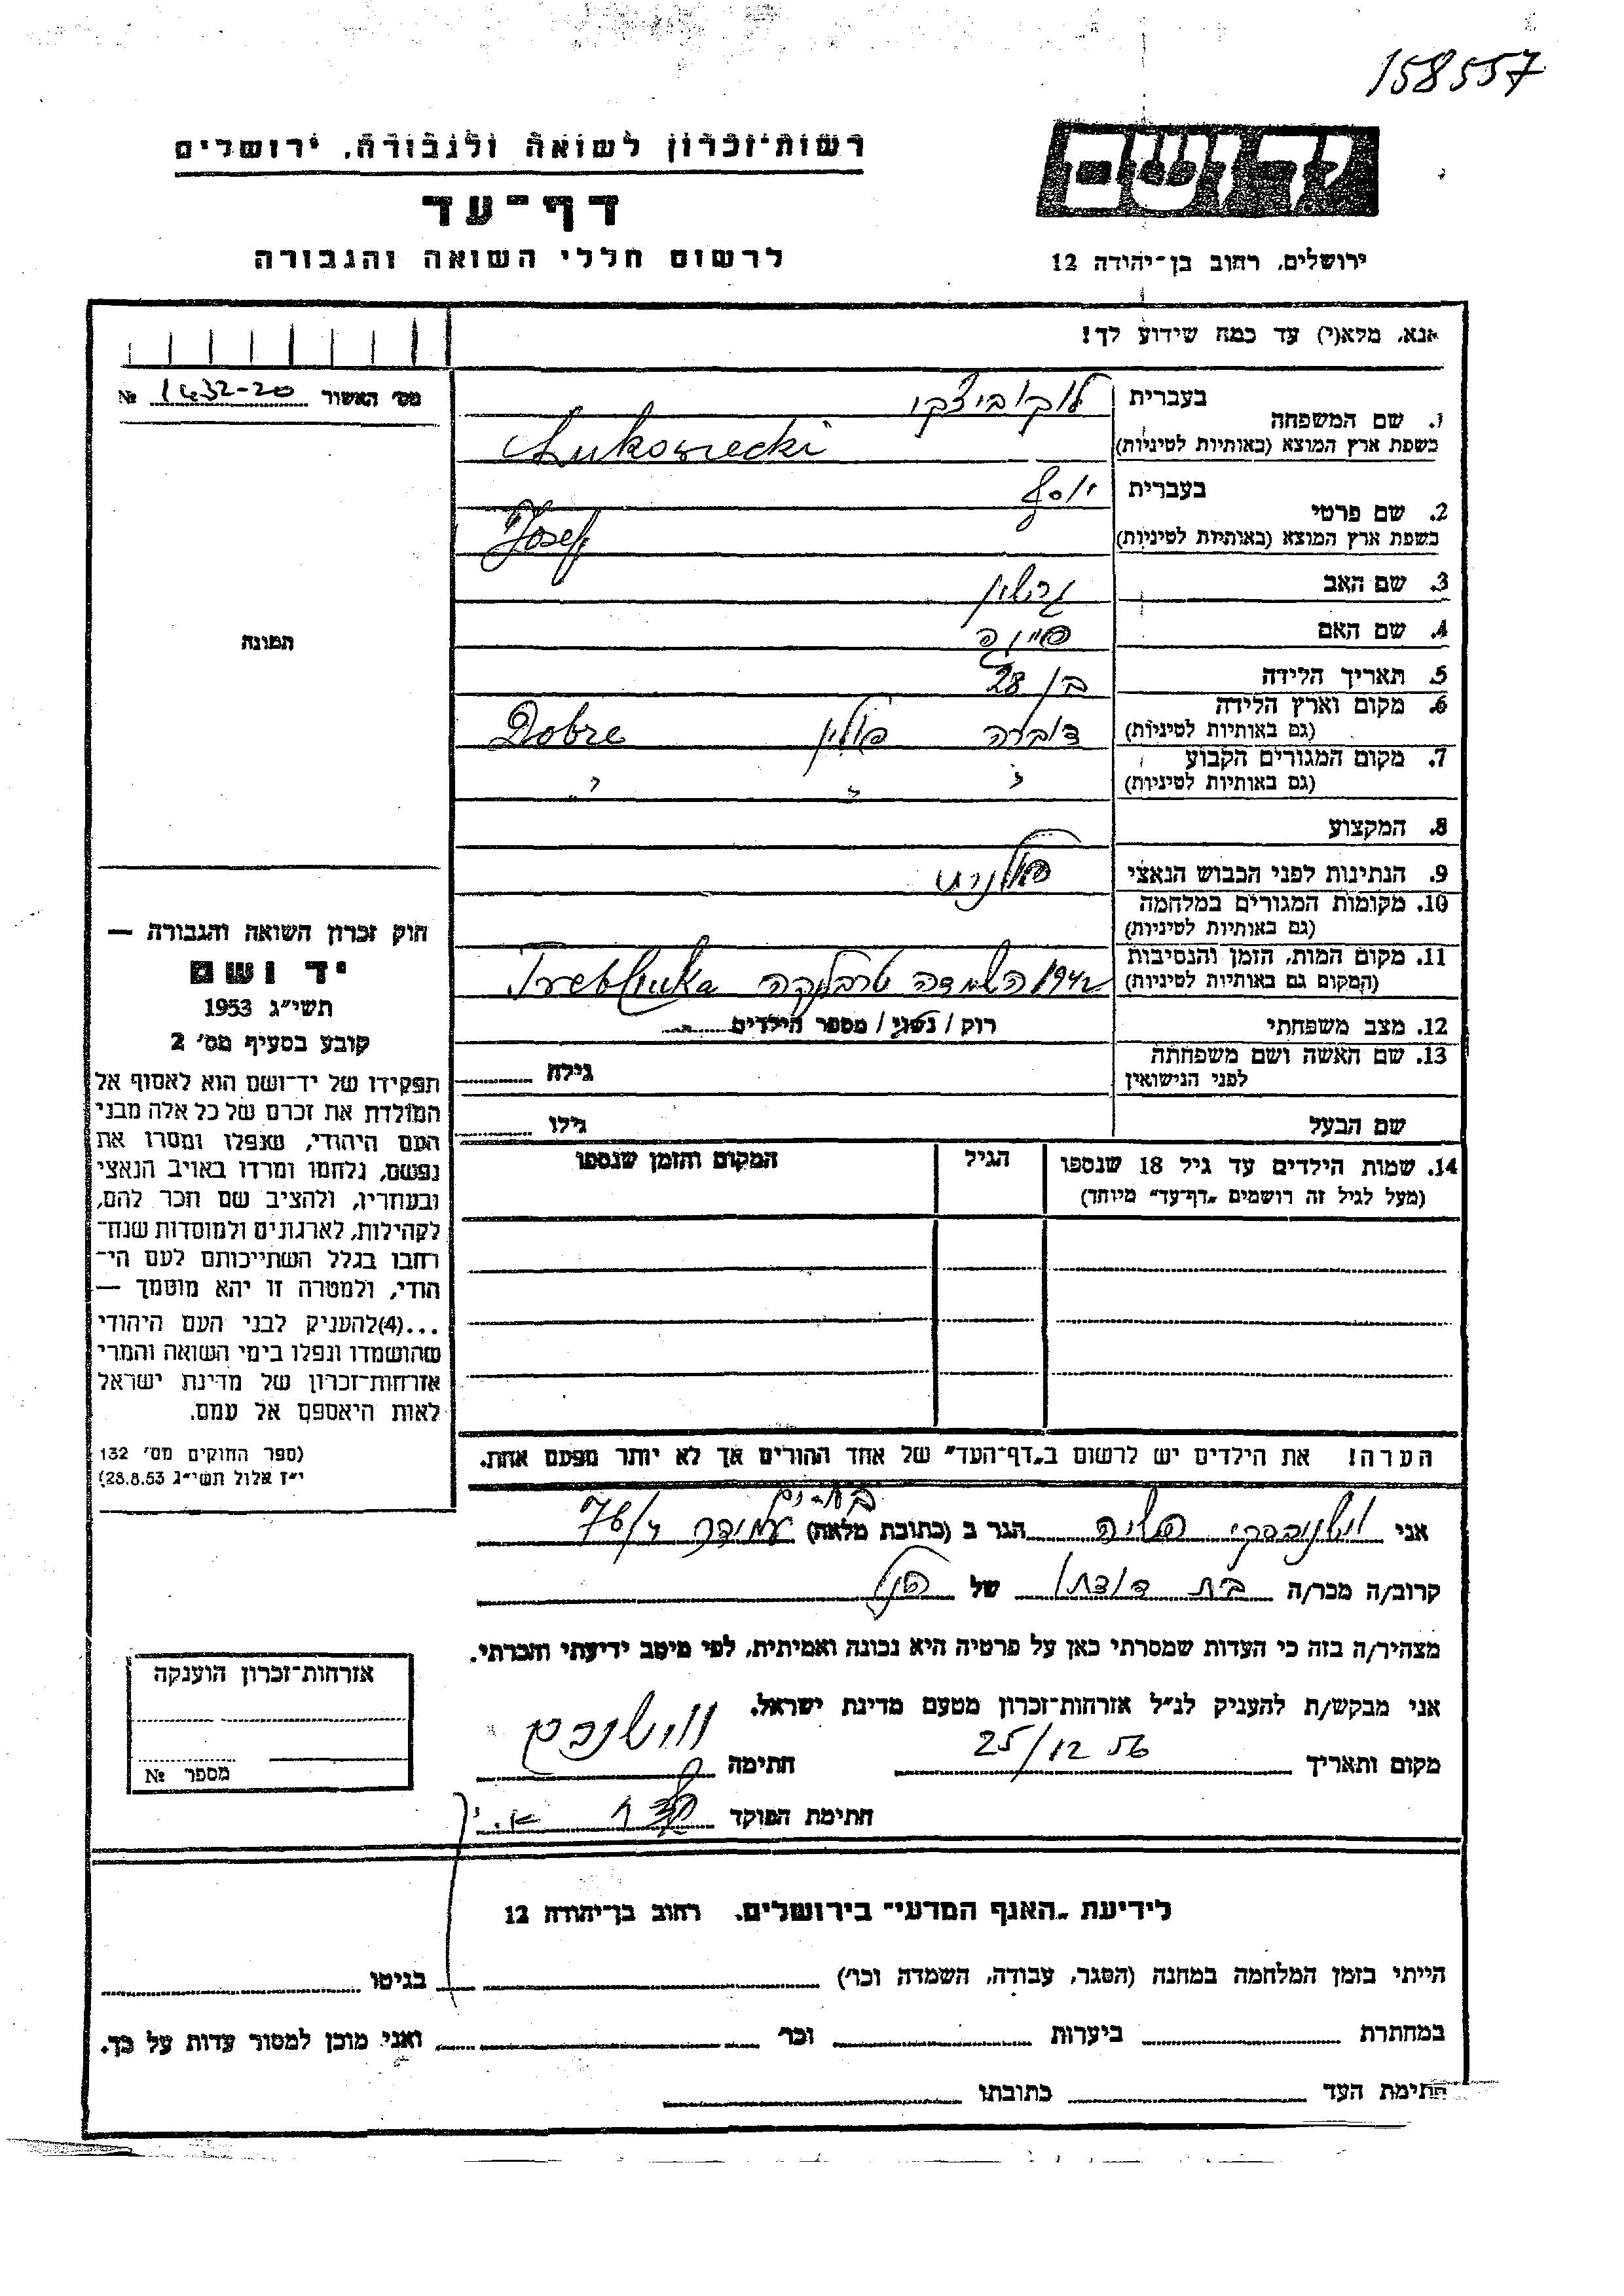 158557
רשות־זכרון לשואה ולגבורה, ירושלים
דף־עד
לרשום חללי השואה והגבורה
ידושם
ירושלים, רחוב בן־יהודה 12
אנא, מלא(י) עד כמה שידוע לך!
מס׳ האשור 1432-20 №
תמונה
1. שם המשפחה
בעברית לוקוביצקי
בשפת ארץ המוצא (באותיות לטיניות) Lukowiecki
2. שם פרטי
בעברית יוסף
בשפת ארץ המוצא (באותיות לטיניות) Josef
3. שם האב גרשון
4. שם האם
5. תאריך הלידה בן 28
6. מקום וארץ הלידה
(גם באותיות לטיניות) דוברה פולין Dobre
7. מקום המגורים הקבוע
(גם באותיות לטיניות) " " "
8. המקצוע
9. הנתינות לפני הכבוש הנאצי
10. מקומות המגורים במלחמה
(גם באותיות לטיניות)
11. מקום המות, הזמן והנסיבות
(המקום גם באותיות לטיניות) 1942 השמדה טרבלינקה Treblinka
12. מצב משפחתי רוק / נשוי / מספר הילדים
13. שם האשה ושם משפחתה
לפני הנישואין גילה
שם הבעל גילו
14. שמות הילדים עד גיל 18 שנספו
(מעל לגיל זה רושמים „דף־עד” מיוחד)
הגיל
המקום והזמן שנספו
הערה! את הילדים יש לרשום ב„דף־העד” של אחד ההורים אך לא יותר מפעם אחת.
חוק זכרון השואה והגבורה —
יד ושם
תשי״ג 1953
קובע בסעיף מס׳ 2
תפקידו של יד־ושם הוא לאסוף אל
המולדת את זכרם של כל אלה מבני
העם היהודי, שנפלו ומסרו את
נפשם, נלחמו ומרדו באויב הנאצי
ובעוזריו, ולהציב שם וזכר להם,
לקהילות, לארגונים ולמוסדות שנח־
רחבו בגלל השתייכותם לעם הי־
הודי, ולמטרה זו יהא מוסמך —
...(4)להעניק לבני העם היהודי
שהושמדו ונפלו בימי השואה והמרי
אזרחות־זכרון של מדינת ישראל
לאות היאספם אל עמם.
(ספר החוקים מס׳ 132
י״ז אלול תשי״ג 28.8.53)
אני הגר ב (כתובת מלאה) עמידר 76/ד
קרוב/ה מכר/ה בת דודתו של הנ״ל
מצהיר/ה בזה כי העדות שמסרתי כאן על פרטיה היא נכונה ואמיתית, לפי מיטב ידיעתי והכרתי.
אני מבקש/ת להעניק לנ״ל אזרחות־זכרון מטעם מדינת ישראל.
מקום ותאריך 25/12 56 חתימה
חתימת הפוקד
אזרחות־זכרון הוענקה
מספר №
לידיעת „האגף המדעי” בירושלים, רחוב בן־יהודה 12
הייתי בזמן המלחמה במחנה (הסגר, עבודה, השמדה וכו׳) בגיטו
במחתרת ביערות וכו׳ ואני מוכן למסור עדות על כך.
חתימת העד כתובתו